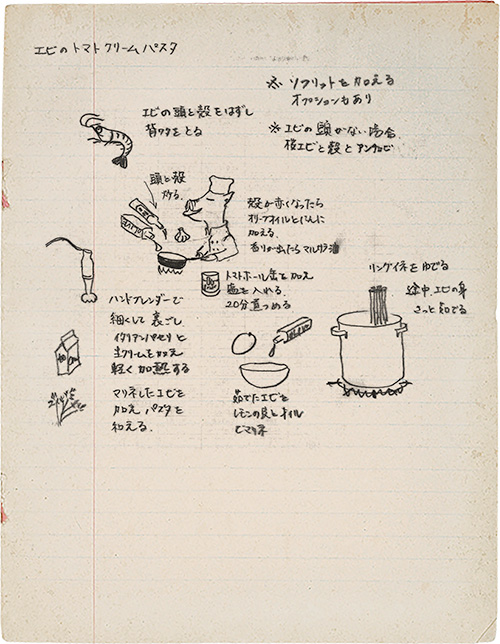 エビのトマトクリームパスタ
※ ソフリットを加える
オプションもあり
エビの頭と殻をはずし
背ワタをとる
※エビの頭がない場合
桜エビと殻とアンチョビ
頭と殻
炒る
殻が赤くなったら
オリーブオイルとにんに
加える
香りが出たらマルサラ酒
トマトホール缶を加え
塩を入れる
20分煮つめる
リングイネをゆでる
途中、エビの身
さっと茹でる
ハンドブレンダーで
細くして裏ごし
イタリアンパセリと
生クリームを加え
軽く加熱する
マリネしたエビを
加え パスタを
和える.
茹でたエビを
レモンの皮とオイル
でマリネ